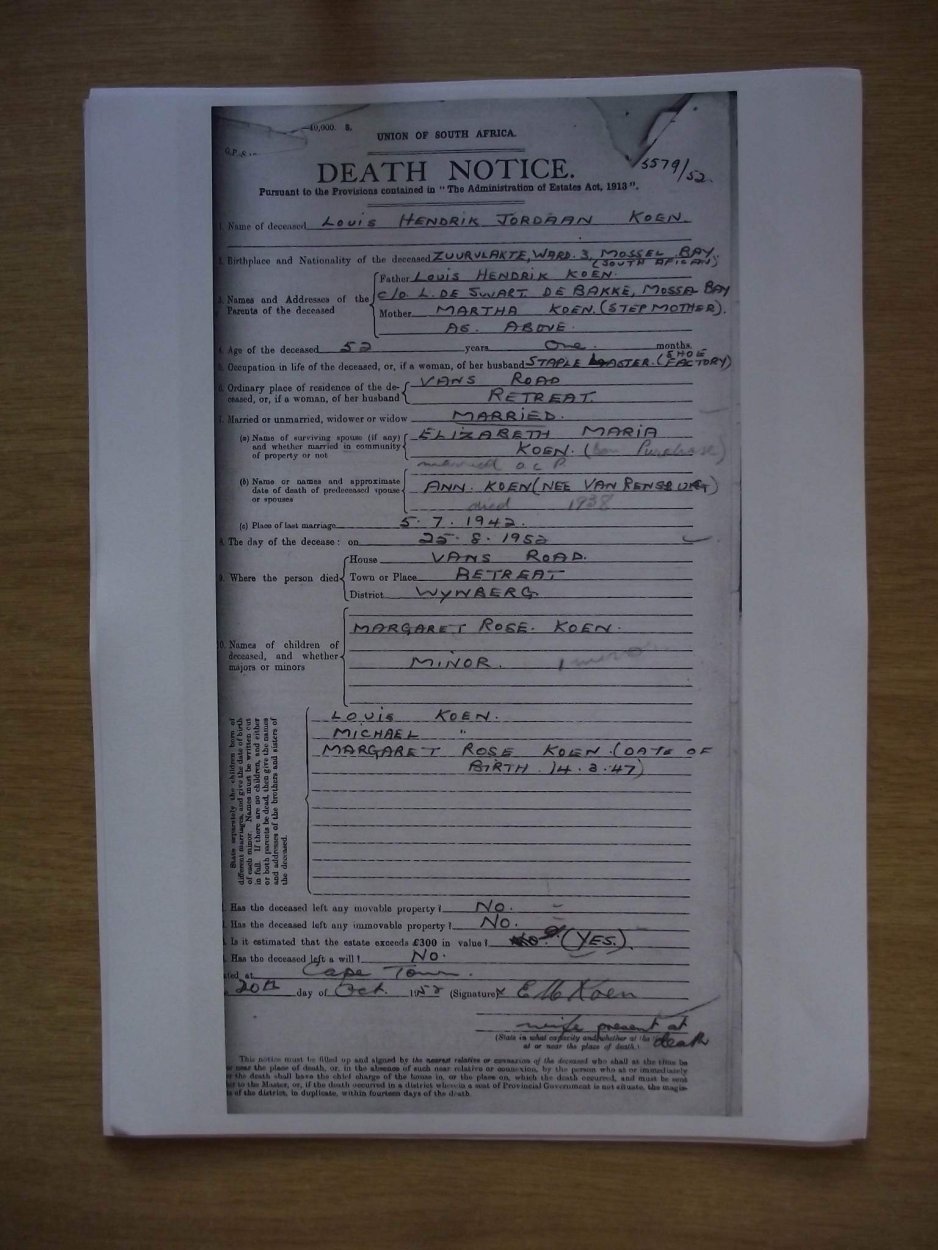 —40,000. S.
G.P.S.
UNION OF SOUTH AFRICA.
DEATH NOTICE.
5579/52.
Pursuant to the Provisions contained in "The Administration of Estates Act, 1913".
1. Name of deceased LOUIS HENDRIK JORDAAN KOEN
2. Birthplace and Nationality of the deceased ZUURVLAKTE, WARD. 3, MOSSEL BAY.
(SOUTH AFICAN)
Father LOUIS HENDRIK KOEN.
3. Names and Addresses of the
Parents of the deceased
c/o. L. DE SWART. DE BAKKE, MOSSEL BAY
Mother MARTHA KOEN. (STEP MOTHER).
AS. ABOVE.
4. Age of the deceased 52 years One. months.
5. Occupation in life of the deceased, or, if a woman, of her husband STAPLE LASTER. (SHOE FACTORY)
6. Ordinary place of residence of the de-
ceased, or, if a woman, of her husband
VANS ROAD
RETREAT.
7. Married or unmarried, widower or widow MARRIED.
(a) Name of surviving spouse (if any)
and whether married in community
of property or not
ELIZABETH MARIA
KOEN.
O C P
(b) Name or names and approximate
date of death of predeceased spouse
or spouses
ANN. KOEN (NEE VAN RENSBURG)
died 1938
(c) Place of last marriage 5. 7. 1942.
8. The day of the decease: on 25. 8. 1952
9. Where the person died
House VANS ROAD.
Town or Place RETREAT
District WYNBERG.
10. Names of children of
deceased, and whether
majors or minors
MARGARET ROSE. KOEN.
MINOR. 1 minor
State separately the children born of
different marriages, and give the date of birth
of each minor. Names must be written out
in full. If there are no children, and either
or both parents be dead, then give the names
and addresses of the brothers and sisters of
the deceased.
LOUIS KOEN.
MICHAEL "
MARGARET ROSE KOEN. (DATE OF
BIRTH. 14. 3. 47)
Has the deceased left any movable property? NO.
Has the deceased left any immovable property? NO.
Is it estimated that the estate exceeds £300 in value? (YES.)
Has the deceased left a will? NO.
ated at Cape Town.
20th day of Oct. 1952 (Signature) X E M Koen
wife present at
death
(State in what capacity and whether at the
at or near the place of death.)
This notice must be filled up and signed by the nearest relative or connexion of the deceased who shall at the time be
or near the place of death, or, in the absence of such near relative or connexion, by the person who at or immediately
er the death shall have the chief charge of the house in, or the place on, which the death occurred, and must be sent
er to the Master, or, if the death occurred in a district wherein a seat of Provincial Government is not situate, the magis-
e of the district, in duplicate, within fourteen days of the death.